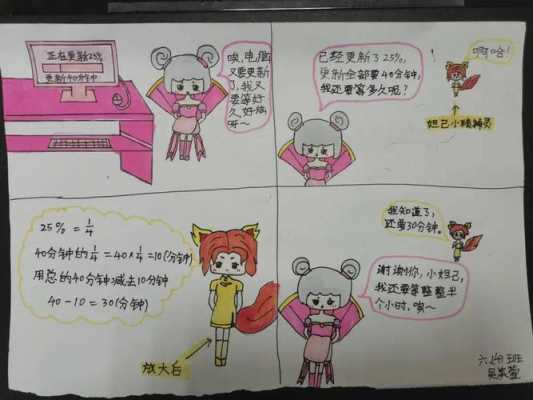 正在更新25%
更新40分钟中
唉,电脑
又要更新
了,我又
要等好
久,好烦
呀～
已经更新了25%,
更新全部要40分钟,
我还要等多久呢?
啊哈!
妲己小精神灵
25% = 1/4
40分钟的1/4=40×1/4=10(分钟)
用总的40分钟减去10分钟
40-10=30(分钟)
放大后
我知道了,
还要30分钟。
谢谢你,小妲己,
我还要等整整半
个小时,唉～